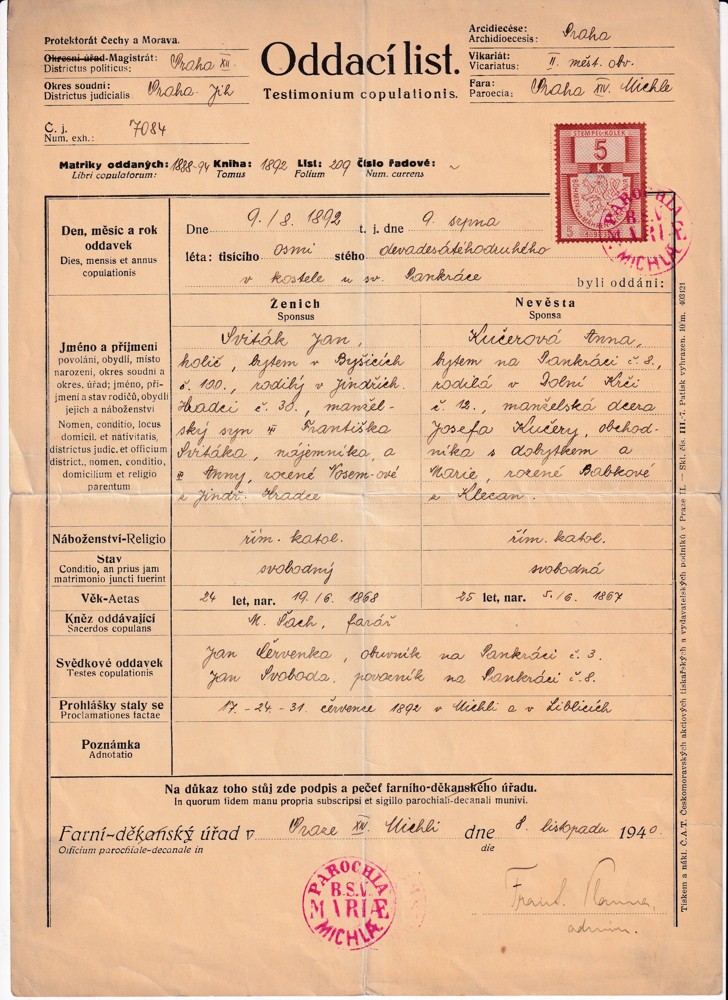 Protektorát Čechy a Morava.
Okresní úřad-Magistrát: Praha XII.
Districtus politicus:
Okres soudní: Praha-Jih
Districtus judicialis
Č. j. 7084
Num. exh.:
Oddací list.
Testimonium copulationis.
Arcidiecése: Praha
Archidioecesis:
Vikariát: II. měst. obv.
Vicariatus:
Fara: Praha XIV. Michle
Paroecia:
Matriky oddaných: 1888-94 Kniha: 1892 List: 209 Číslo řadové: ~
Libri copulatorum: Tomus Folium Num. currens
STEMPEL-KOLEK
5
K
BÖHMEN UND MÄHREN
5
PAROCHIA
B.S.V.
MARIÆ
MICHLÆ
Den, měsíc a rok
oddavek
Dies, mensis et annus
copulationis
Dne 9./8. 1892 t. j. dne 9. srpna
léta: tisícího osmi stého devadesátéhodruhého
v kostele u sv. Pankráce byli oddáni:
Ženich
Sponsus
Nevěsta
Sponsa
Jméno a příjmení
povolání, obydlí, místo
narození, okres soudní a
okres. úřad; jméno, pří-
jmení a stav rodičů, obydlí
jejich a náboženství
Nomen, conditio, locus
domicil. et nativitatis,
districtus judic. et officium
district., nomen, conditio,
domicilium et religio
parentum
Sviták Jan,
holič, bytem v Byšicích
č. 100., rodilý v Jindřich.
Hradci č. 30., manžel-
ský syn Františka
Svitáka, nájemníka, a
Anny, rozené Vosem-ové
z Jindř. Hradce
Kučerová Anna,
bytem na Pankráci č. 8.,
rodilá v Dolní Krči
č. 12., manželská dcera
Josefa Kučery, obchod-
níka s dobytkem a
Marie, rozené Babkové
z Klecan.
Náboženství-Religio řím. katol. řím. katol.
Stav
Conditio, an prius jam
matrimonio juncti fuerint
svobodný svobodná
Věk-Aetas 24 let, nar. 19./6. 1868 25 let, nar. 5./6. 1867
Kněz oddávající
Sacerdos copulans
M. Pach, farář
Svědkové oddavek
Testes copulationis
Jan Červenka, obuvník na Pankráci č. 3.
Jan Svoboda, povozník na Pankráci č. 8.
Prohlášky staly se
Proclamationes factae
17.-24.-31. července 1892 v Michli a v Liblicích
Poznámka
Adnotatio
Na důkaz toho stůj zde podpis a pečeť farního-děkanského úřadu.
In quorum fidem manu propria subscripsi et sigillo parochiali-decanali munivi.
Farní-děkanský úřad v Praze XIV. Michli dne 8. listopadu 1940.
Officium parochiale-decanale in die
PAROCHIA
B.S.V.
MARIÆ
MICHLÆ
Frant.
admin.
Tiskem a nákl. Č.A.T. Českomoravských akciových tiskařských a vydavatelských podniků v Praze II. — Skl. čís. III.-7. Patisk vyhrazen. 10/m. 403121